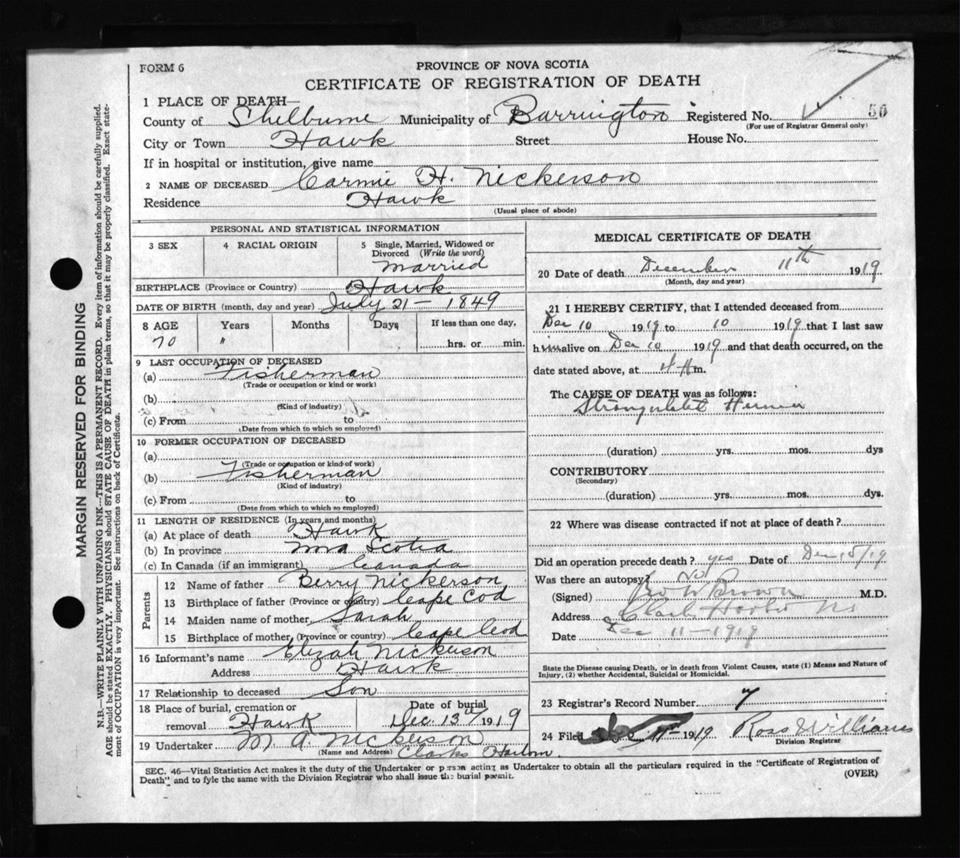 FORM 6
PROVINCE OF NOVA SCOTIA
CERTIFICATE OF REGISTRATION OF DEATH
1 PLACE OF DEATH—
County of Shelburne Municipality of Barrington Registered No. 50
(For use of Registrar General only)
City or Town Hawk Street House No.
If in hospital or institution, give name
2 NAME OF DECEASED Carmie H. Nickerson
Residence Hawk
(Usual place of abode)
PERSONAL AND STATISTICAL INFORMATION
3 SEX 4 RACIAL ORIGIN 5 Single, Married, Widowed or Divorced (Write the word)
Married
BIRTHPLACE (Province or Country) Hawk
DATE OF BIRTH (month, day and year) July 21 - 1849
8 AGE Years Months Days If less than one day,
70 " hrs. or min.
9 LAST OCCUPATION OF DECEASED
(a) Fisherman
(Trade or occupation or kind or work)
(b)
(Kind of industry)
(c) From to
(Date from which to which so employed)
10 FORMER OCCUPATION OF DECEASED
(a)
(Trade or occupation or kind of work)
(b) Fisherman
(Kind of industry)
(c) From to
(Date from which to which so employed)
11 LENGTH OF RESIDENCE (In years and months)
(a) At place of death Hawk
(b) In province Nova Scotia
(c) In Canada (if an immigrant) Canada
Parents
12 Name of father Berry Nickerson
13 Birthplace of father (Province or country) Cape Cod
14 Maiden name of mother Sarah
15 Birthplace of mother (Province or country) Cape Cod
16 Informant's name Elizah Nickerson
Address Hawk
17 Relationship to deceased Son
18 Place of burial, cremation or removal Hawk Date of burial Dec 13th 1919
19 Undertaker M. A. Nickerson
(Name and Address) Clarks Harbor
MEDICAL CERTIFICATE OF DEATH
20 Date of death December 11th 1919
(Month, day and year)
21 I HEREBY CERTIFY, that I attended deceased from
Dec 10 1919 to 10 1919 that I last saw
him alive on Dec 10 1919 and that death occurred, on the
date stated above, at m.
The CAUSE OF DEATH was as follows:
Strangulated Hernia
(duration) yrs. mos. dys
CONTRIBUTORY
(Secondary)
(duration) yrs. mos. dys.
22 Where was disease contracted if not at place of death?
Did an operation precede death? yes Date of Dec 10/19
Was there an autopsy? No
(Signed) Geo W Brown M.D.
Address Clark Harbor NS
Date Dec 11-1919
State the Disease causing Death, or in death from Violent Causes, state (1) Means and Nature of Injury, (2) whether Accidental, Suicidal or Homicidal.
23 Registrar's Record Number 7
24 Filed 11th 1919 Ross Williams
Division Registrar
SEC. 46—Vital Statistics Act makes it the duty of the Undertaker or person acting as Undertaker to obtain all the particulars required in the "Certificate of Registration of
Death" and to fyle the same with the Division Registrar who shall issue the burial permit.
(OVER)
MARGIN RESERVED FOR BINDING
N.B.—WRITE PLAINLY WITH UNFADING INK—THIS IS A PERMANENT RECORD. Every item of information should be carefully supplied.
AGE should be stated EXACTLY. PHYSICIANS should STATE CAUSE OF DEATH in plain terms, so that it may be properly classified. Exact statement of OCCUPATION is very important. See instructions on back of Certificate.